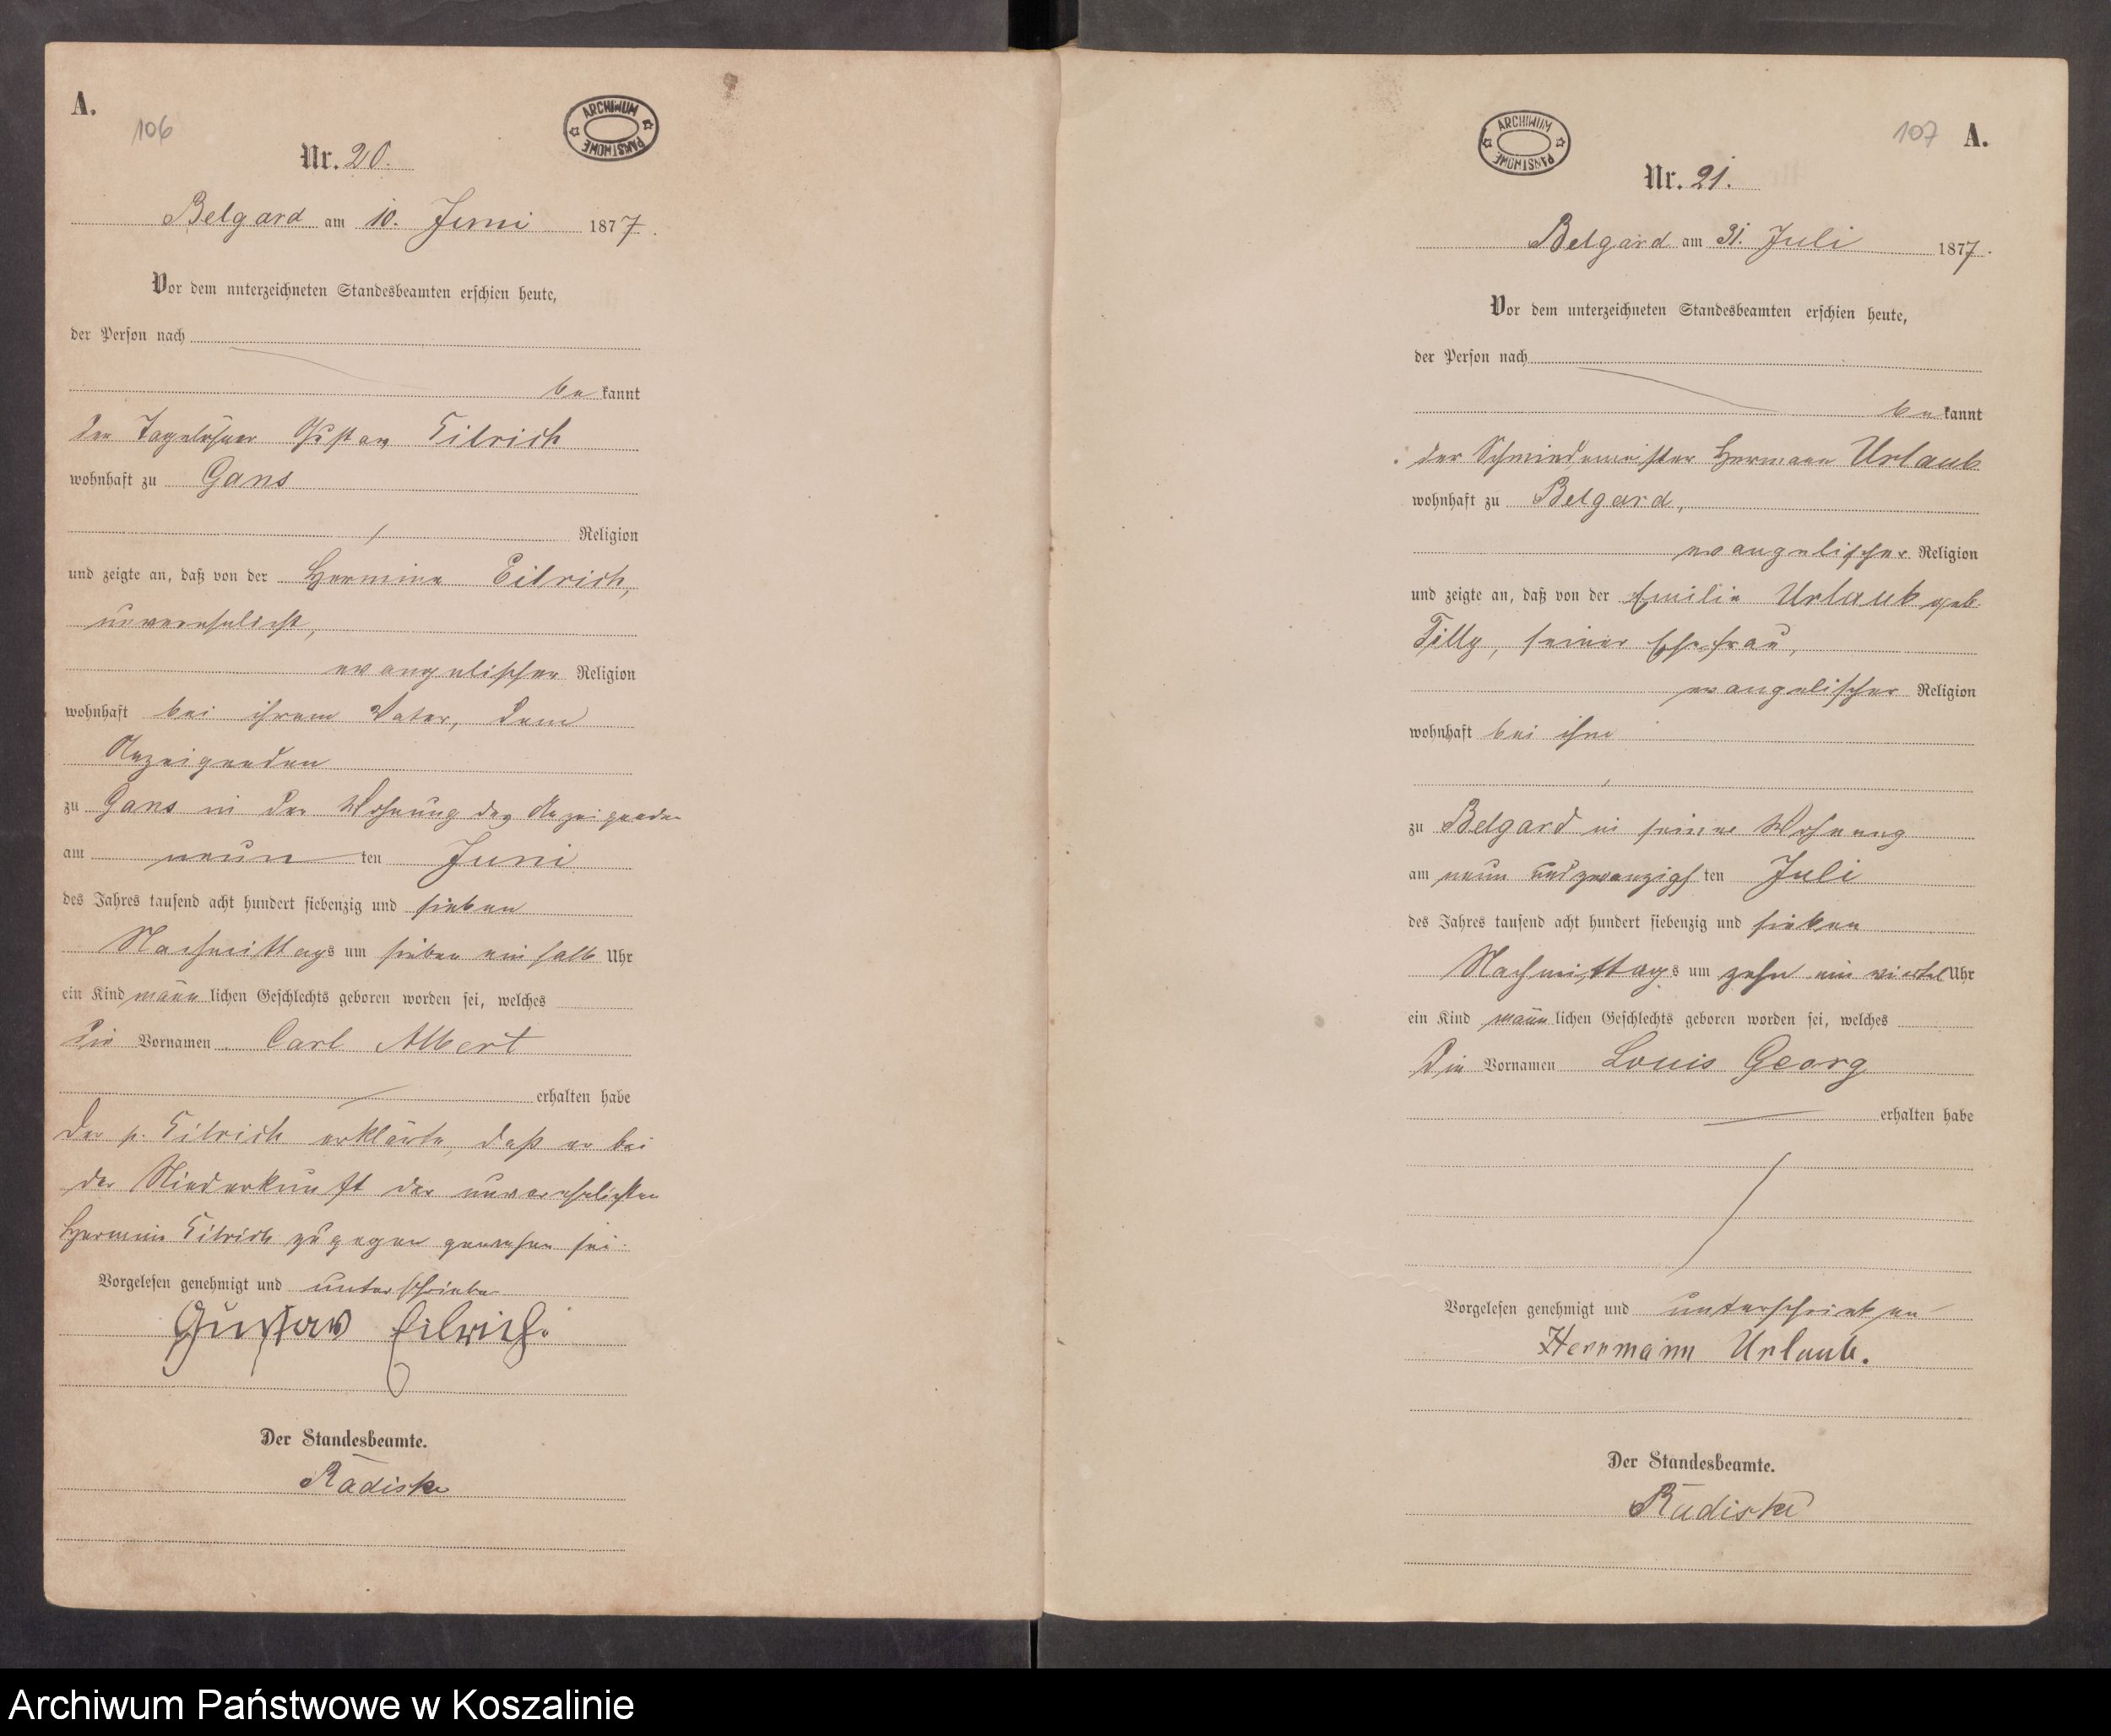 A.
106
ARCHIWUM PAŃSTWOWE
Nr. 20.
Belgard am 10. Juni 1877.
Vor dem unterzeichneten Standesbeamten erschien heute,
der Person nach
be kannt
der Tagelöhner Gustav Eilrich
wohnhaft zu Gans
Religion
und zeigte an, daß von der Hermine Eilrich,
unverehelicht,
evangelischer Religion
wohnhaft bei ihrem Vater, dem
Anzeigenden
zu Gans in der Wohnung des Anzeigenden
am neun ten Juni
des Jahres tausend acht hundert siebenzig und sieben
Nachmittags um sieben ein halb Uhr
ein Kind männ lichen Geschlechts geboren worden sei, welches
die Vornamen Carl Albert
erhalten habe
Der p. Eilrich erklärte, daß er bei
der Niederkunft der unverehelichten
Hermine Eilrich zugegen gewesen sei.
Vorgelesen genehmigt und unterschrieben
Gustav Eilrich.
Der Standesbeamte.
Radiske
107
A.
ARCHIWUM PAŃSTWOWE
Nr. 21.
Belgard am 31. Juli 1877.
Vor dem unterzeichneten Standesbeamten erschien heute,
der Person nach
be kannt
der Schmiedemeister Hermann Urlaub
wohnhaft zu Belgard,
evangelischer Religion
und zeigte an, daß von der Emilie Urlaub geb.
Tilly, seiner Ehefrau,
evangelischer Religion
wohnhaft bei ihm
zu Belgard in seiner Wohnung
am neun und zwanzigs ten Juli
des Jahres tausend acht hundert siebenzig und sieben
Nachmittags um zehn ein viertel Uhr
ein Kind männ lichen Geschlechts geboren worden sei, welches
die Vornamen Louis Georg
erhalten habe
Vorgelesen genehmigt und unterschrieben
Herrmann Urlaub.
Der Standesbeamte.
Radiske
Archiwum Państwowe w Koszalinie